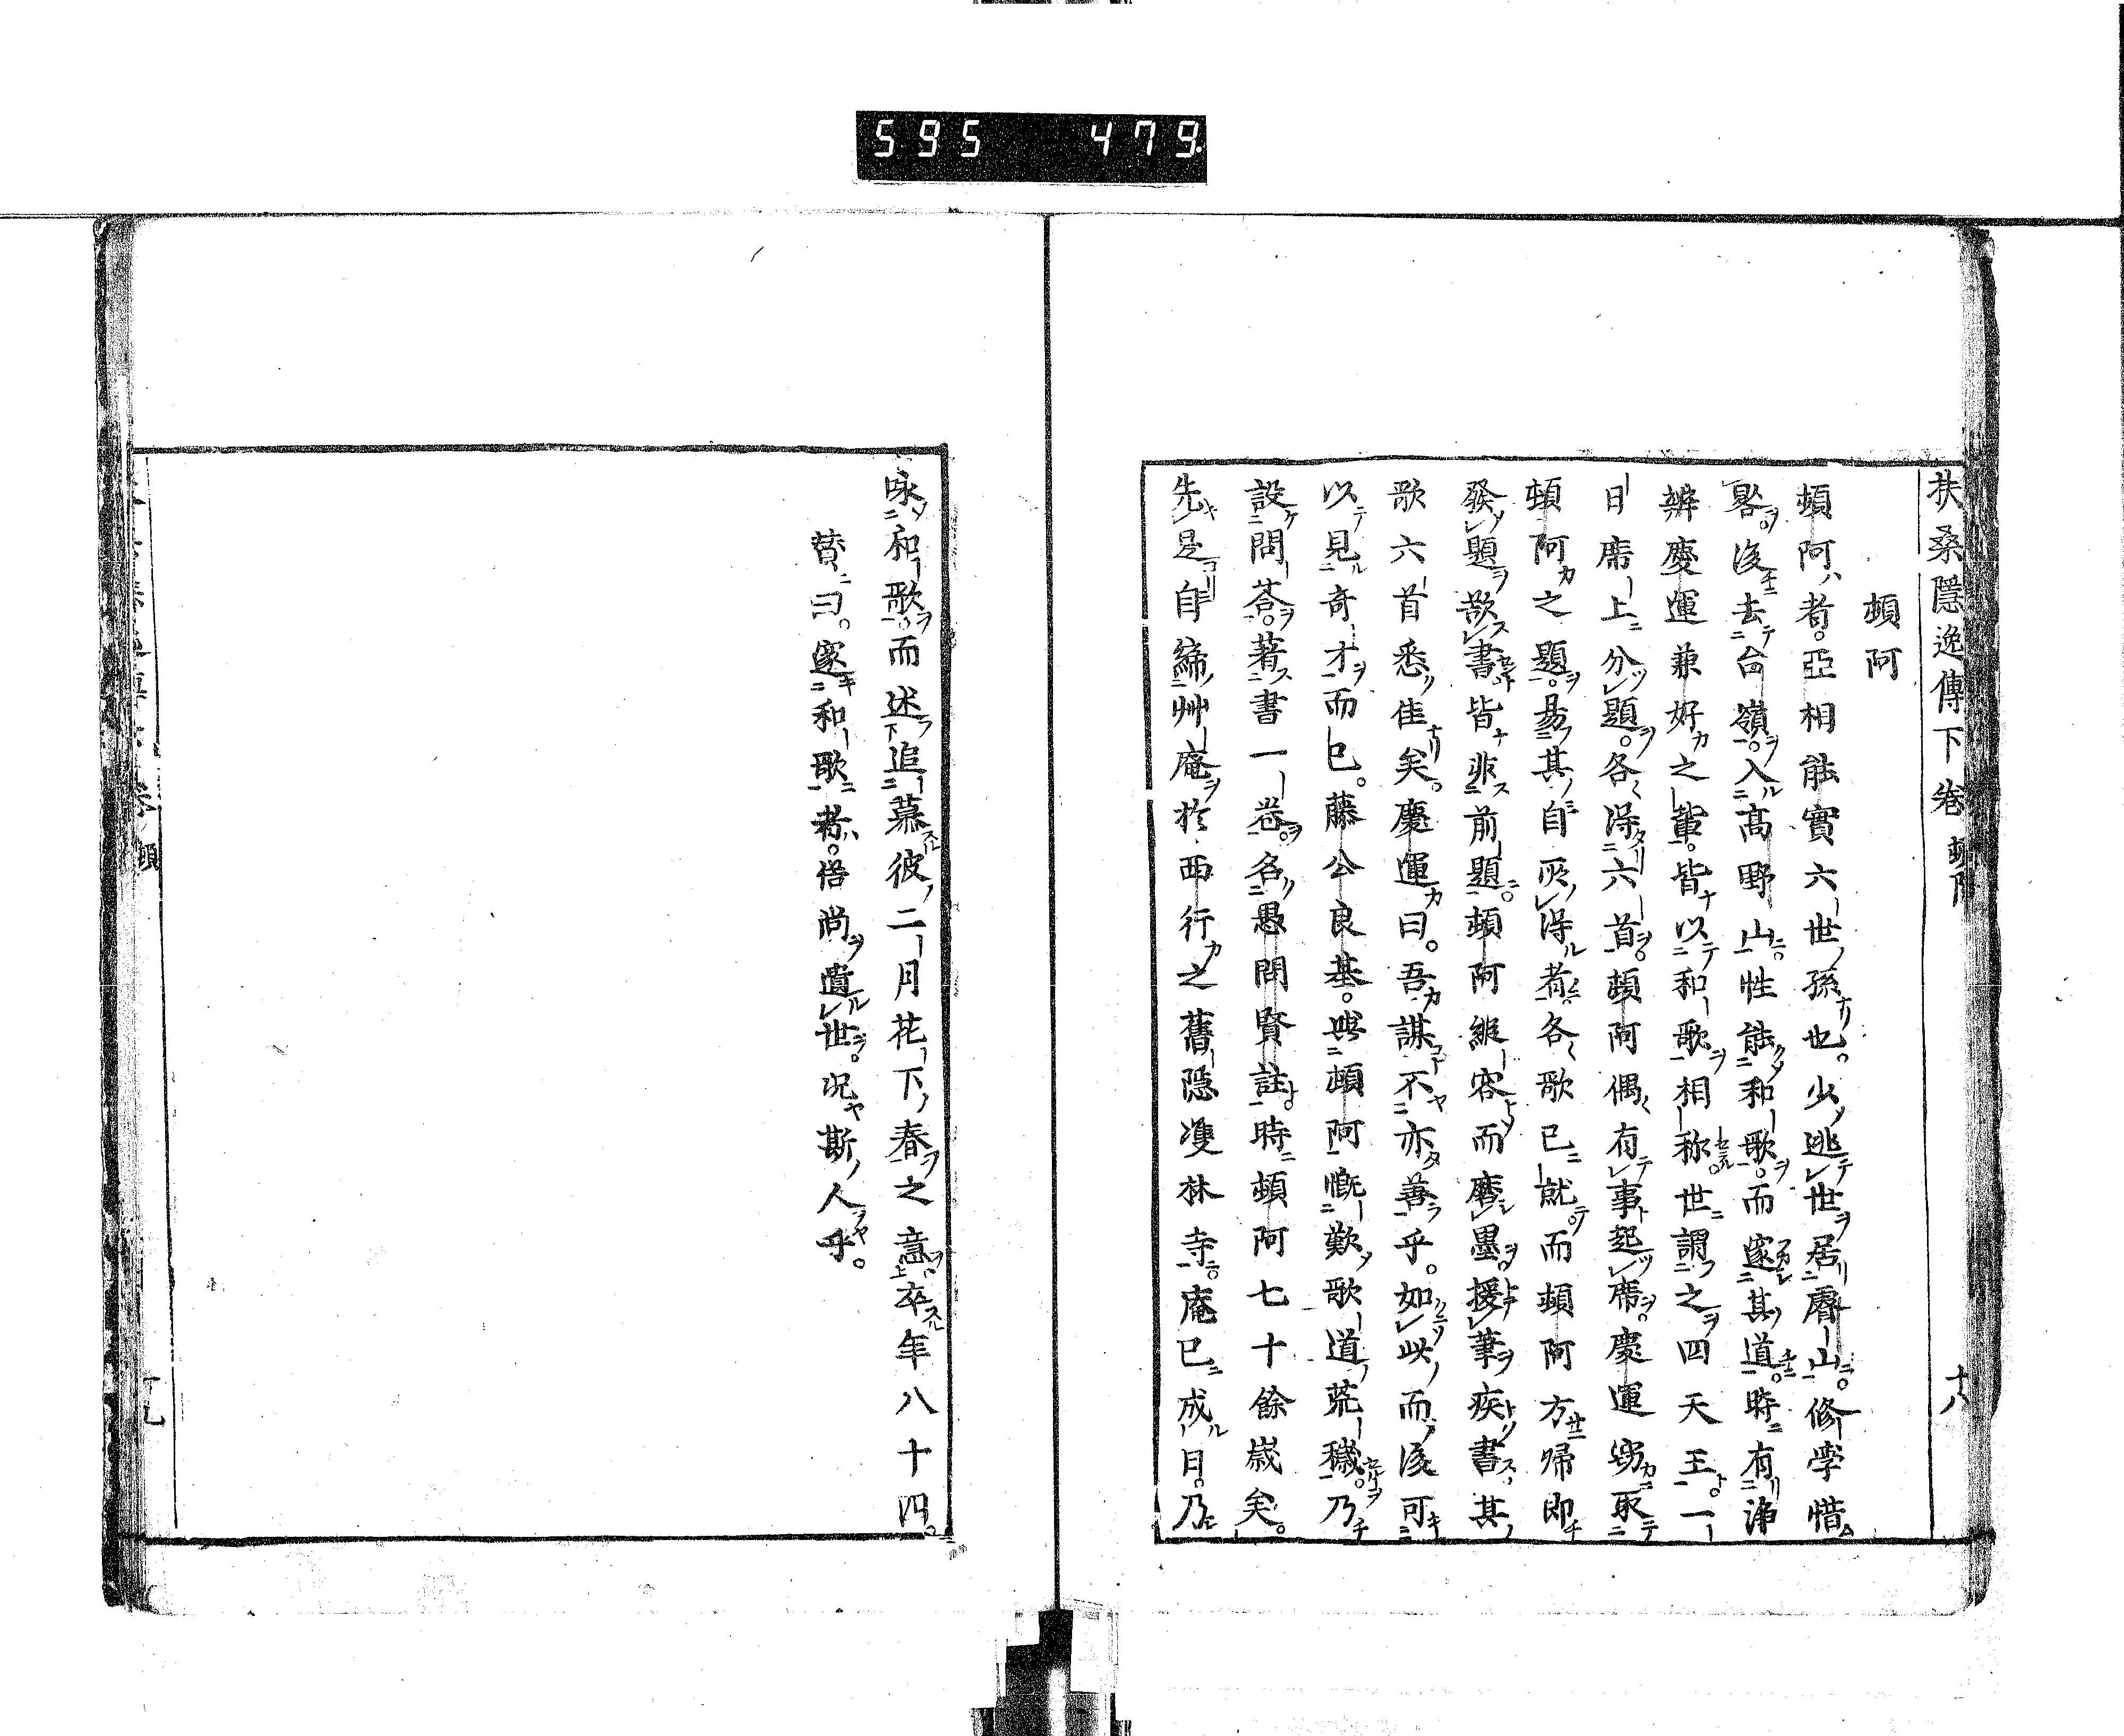 595 479.
扶桑隱逸傳下卷 頓阿 十八
頓阿
頓阿者。亞相能實六世孫也。少逃世居睿山。修学惜
晷。後去台嶺。入高野山。性能和歌。而邃其道。時有淨
辨慶運兼好之輩。皆以和歌相称。世謂之四天王。一
日席上分題。各得六首。頓阿偶有事起席。慶運竊取
頓阿之題。易其自所得者。各歌已就而頓阿方帰即
發題欲書皆非前題。頓阿縦容而磨墨。援筆疾書其
歌六首悉佳矣。慶運曰。吾謀不亦善乎。如此而後可
以見奇才而已。藤公良基。與頓阿慨歎歌道荒穢。乃
設問荅。著書一卷。名愚問賢註。時頓阿七十餘歳矣。
先是自締艸庵於西行之舊隱双林寺。庵已成日。乃
咏和歌。而述追慕彼二月花下春之意。卒年八十四。
贊曰。邃和歌者。僧尚遺世。况斯人乎。
頓